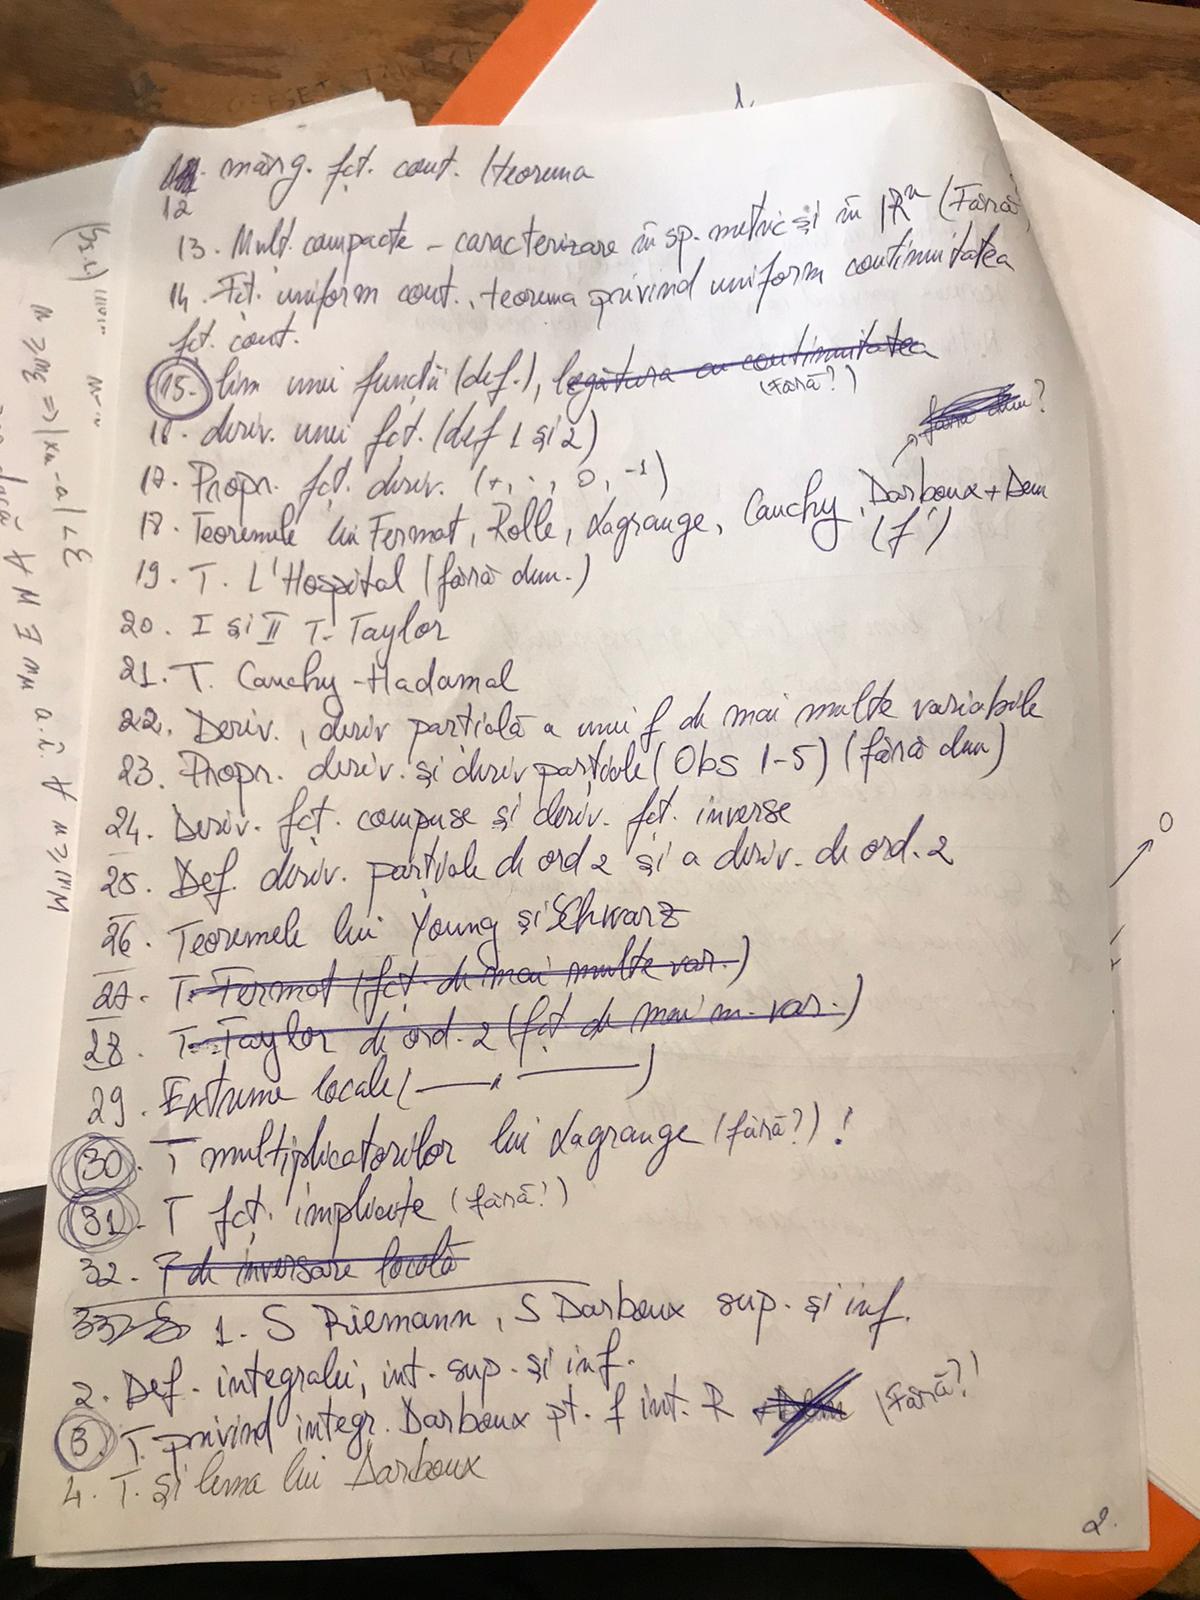 mărg. fct. cont. (teorema
12
13. Mulț. compacte - caracterizare în sp. metric și în |R^n (Fără
14. Fct. uniform cont., teorema privind uniform continuitatea
fct. cont.
15. lim unei funcții (def.), legătura cu continuitatea
(fără?)
16. deriv. unei fct. (def 1 și 2)
fără dem?
17. Propr. fct. deriv. (+, ·, o, -1)
18. Teoremele lui Fermat, Rolle, Lagrange, Cauchy, Darboux + Dem
(f')
19. T. L'Hospital (fără dem.)
20. I și II T. Taylor
21. T. Cauchy-Hadamal
22. Deriv., deriv parțială a unei f de mai multe variabile
23. Propr. deriv. și deriv parțiale (Obs 1-5) (fără dem)
24. Deriv. fct. compuse și deriv. fct. inverse
25. Def. deriv. parțiale de ord 2 și a deriv. de ord. 2
26. Teoremele lui Young și Schwarz
27. T. Fermat (fct. de mai multe var.)
28. T. Taylor de ord. 2 (fct de mai m. var.)
29. Extreme locale (—— " ——)
30. T multiplicatorilor lui Lagrange (fără?) !
31. T fct. implicite (fără?)
32. T de inversare locală
33 1. S Riemann, S Darboux sup. și inf.
2. Def. integralei, int. sup. și inf.
3. T. privind integr. Darboux pt. f int. R (Fără?)
4. T. și lema lui Darboux
2.